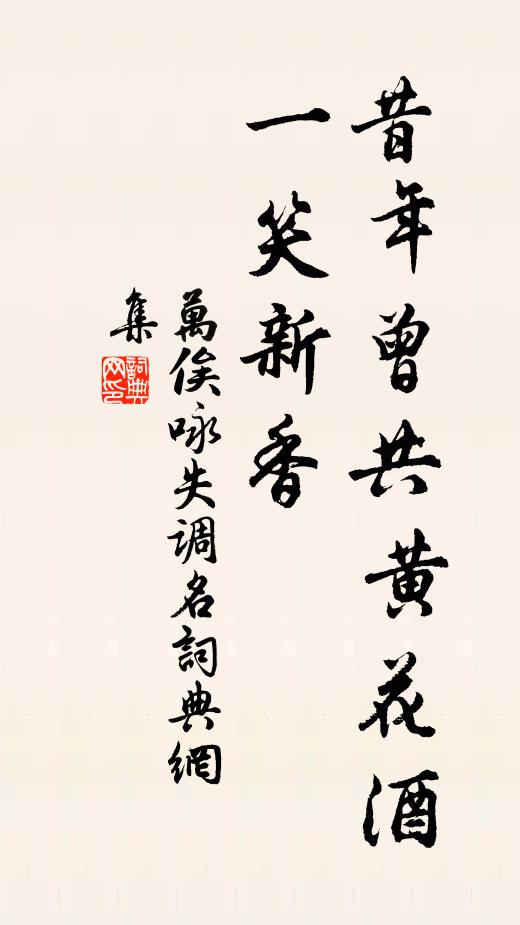 昔年曾共黄花酒
一笑新香
萬俟咏失調名詞典網
集
詞典
网印